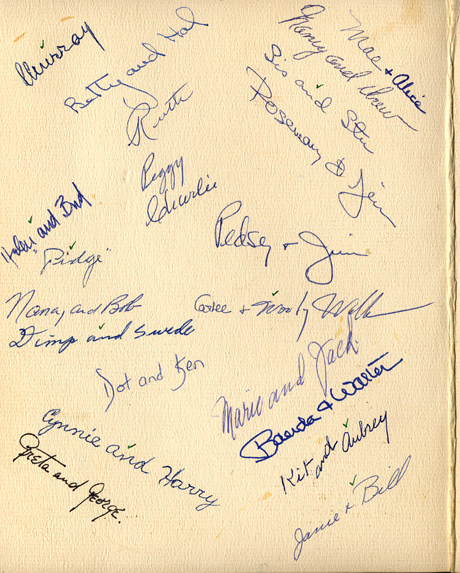 Murray
Betty and Hal
Ruth
Mae + Alice
Nancy and Drew
Sis and Stu
Rosemary & Jim
Peggy
Charlie
Helen and Bud
Pidge
Pedsey + Jim
Nancy and Bob
+ Woody Walk
Dimp and Swede
Dot and Ken
Marie and Jack
Brenda & Walter
Kit and Aubrey
Cynnie and Harry
Greta and George
Janie + Bill